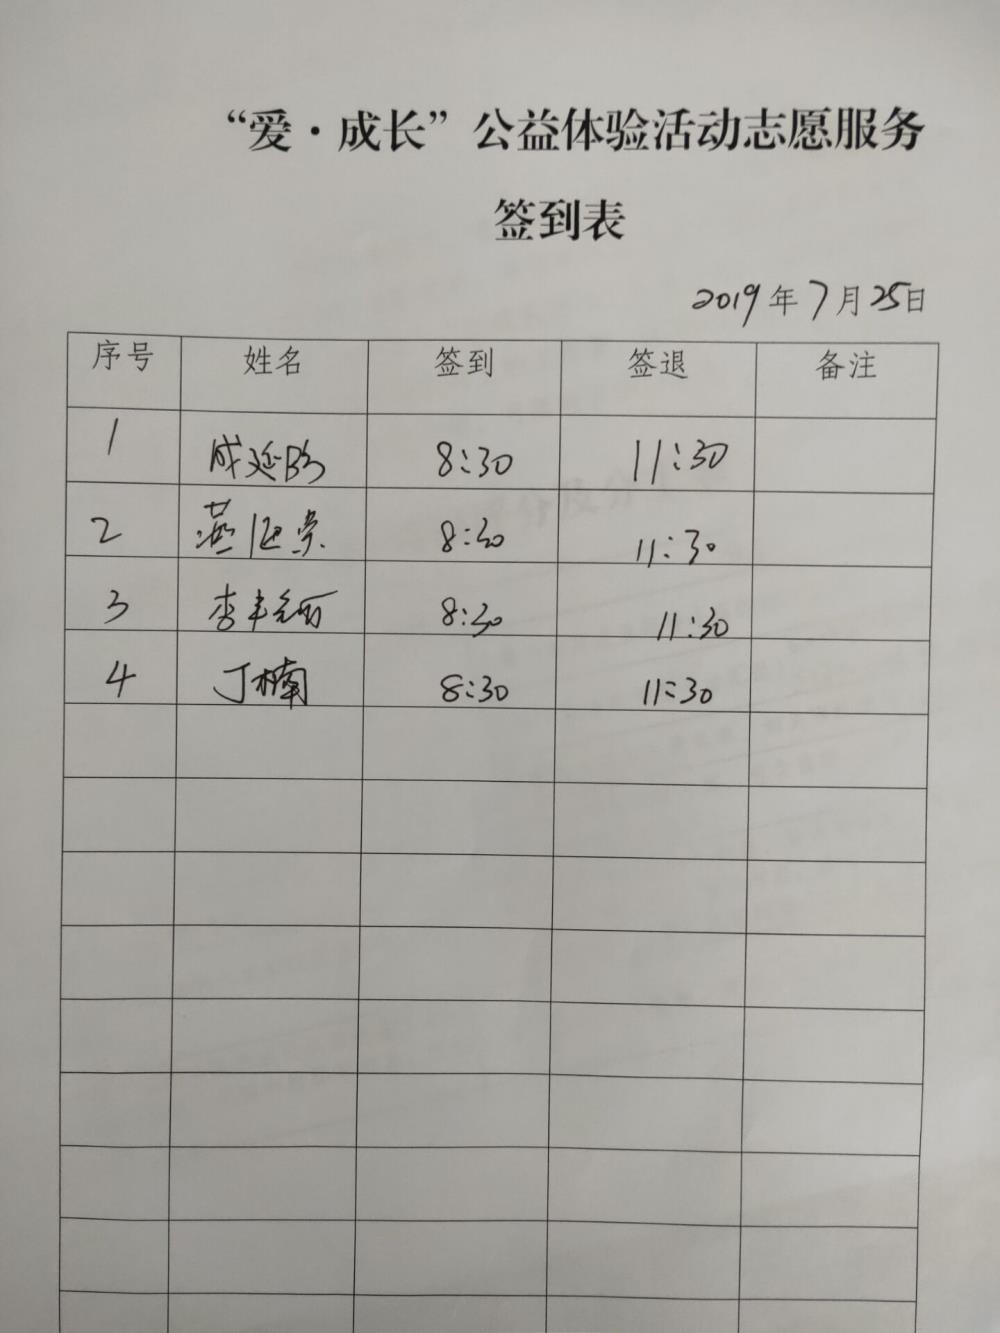 “爱·成长”公益体验活动志愿服务
签到表
2019年7月25日
序号 姓名 签到 签退 备注
1 8:30 11:30
2 8:30 11:30
3 8:30 11:30
4 丁楠 8:30 11:30